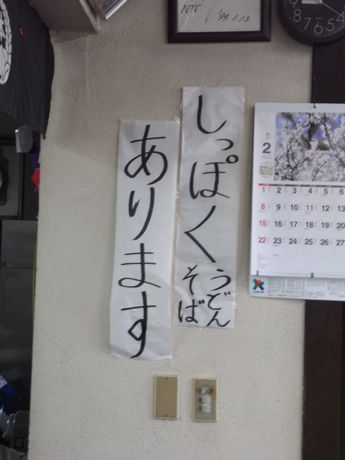 NTV '99.1.13
しっぽくうどん
そば
あります
2
1 2 3 4 5
8 9 10 11 12 13
15 16 17 18 19 20
22 23 24 25 26 27